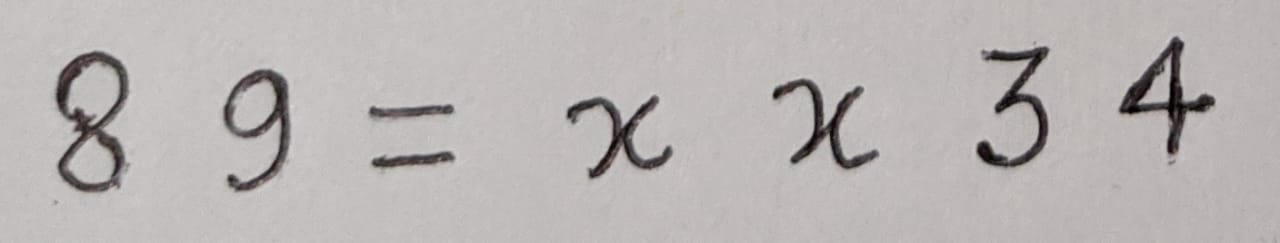 8 9 = x x 3 4